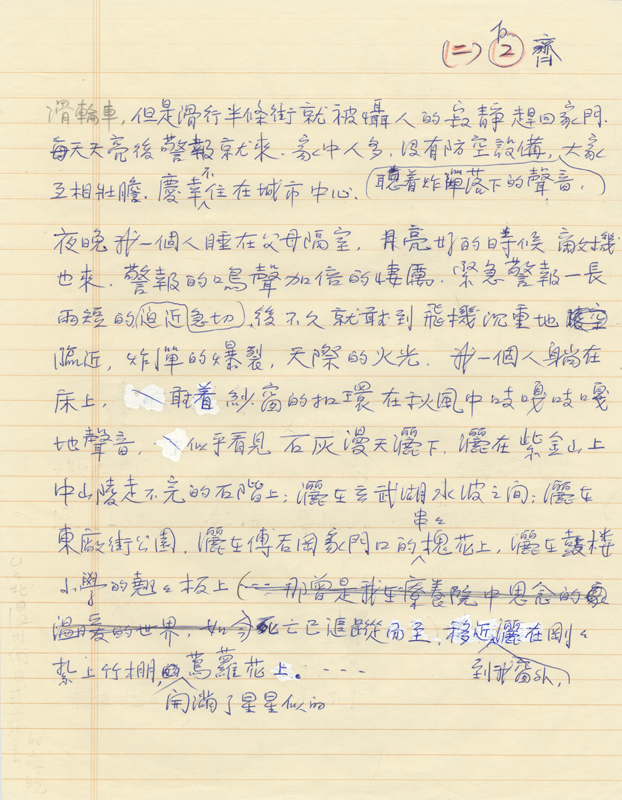 (二) P2 齊
滑輪車,但是滑行半條街就被懾人的寂靜趕回家門.
每天天亮後警報就來.家中人多,沒有防空設備,大家
互相壯膽.慶幸不住在城市中心.聽着炸彈落下的聲音,
夜晚我一個人睡在父母隔室,月亮好的時候敵機
也來.警報的鳴聲加倍的悽厲.緊急警報一長
兩短的迫近急切,後不久就聽到飛機沉重地
臨近,炸彈的爆裂,天際的火光.我一個人躺在
床上,聽着紗窗的扣環在秋風中吱嘎吱嘎
地聲音.似乎看見石灰漫天灑下,灑在紫金山上
中山陵走不完的石階上;灑在玄武湖水波之間;灑在
東廠街公園,灑在傅厚岡家門口的串串槐花上,灑在鼓楼
小學的翹翹板上(--- 那曾是我在療養院中思念的
溫暖的世界,如今死亡已追蹤而至,移近灑在剛剛
到我窗外,
紮上竹棚,蔦蘿花上.----
開滿了星星似的